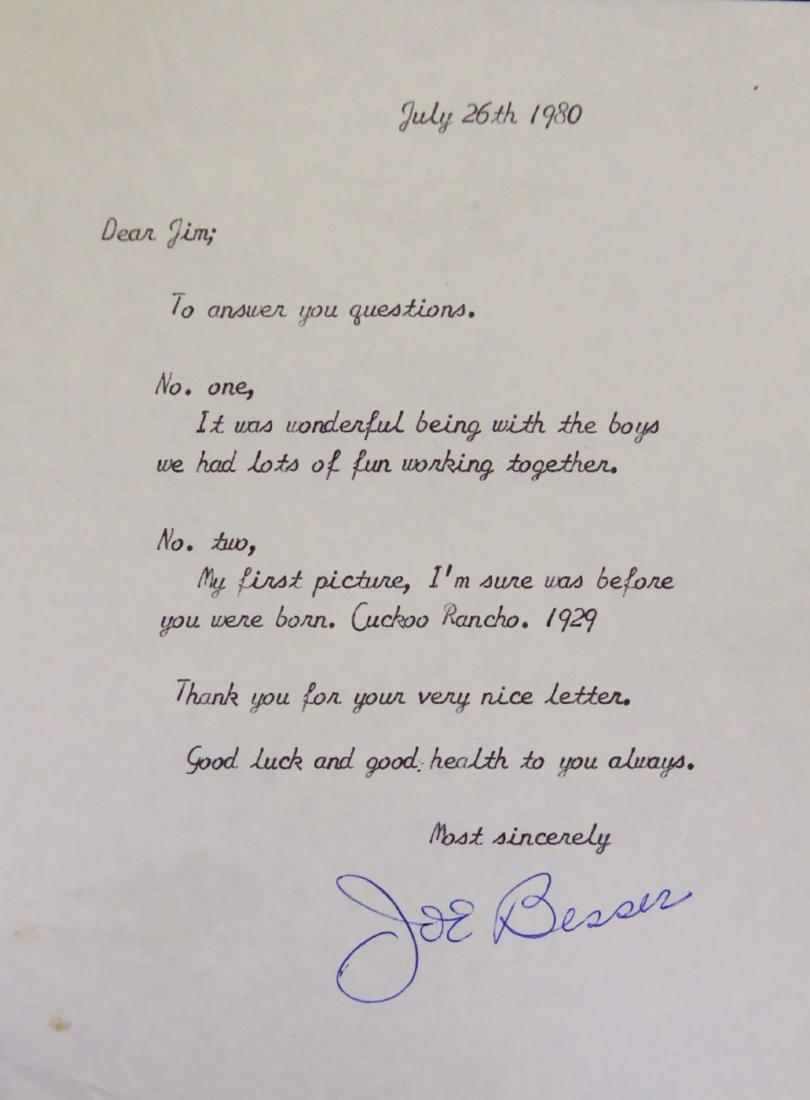 July 26th 1980
Dear Jim;
To answer you questions.
No. one,
It was wonderful being with the boys
we had lots of fun working together.
No. two,
My first picture, I'm sure was before
you were born. Cuckoo Rancho. 1929
Thank you for your very nice letter.
Good luck and good health to you always.
Most sincerely
Joe Besser